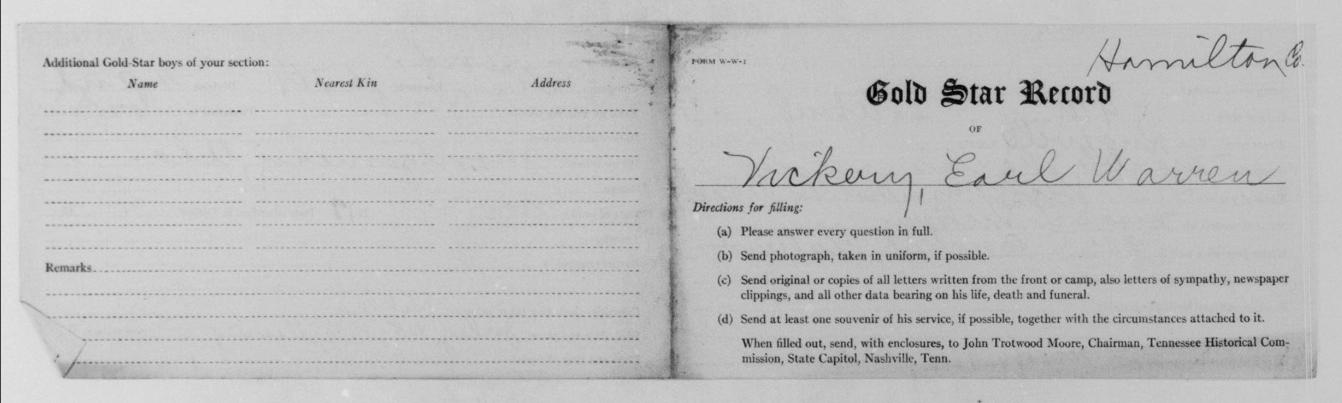 Additional Gold-Star boys of your section:
Name Nearest Kin Address
Remarks
FORM W-W-1
Hamilton Co.
Gold Star Record
OF
Vickery, Earl Warren
Directions for filling:
(a) Please answer every question in full.
(b) Send photograph, taken in uniform, if possible.
(c) Send original or copies of all letters written from the front or camp, also letters of sympathy, newspaper
clippings, and all other data bearing on his life, death and funeral.
(d) Send at least one souvenir of his service, if possible, together with the circumstances attached to it.
When filled out, send, with enclosures, to John Trotwood Moore, Chairman, Tennessee Historical Com-
mission, State Capitol, Nashville, Tenn.